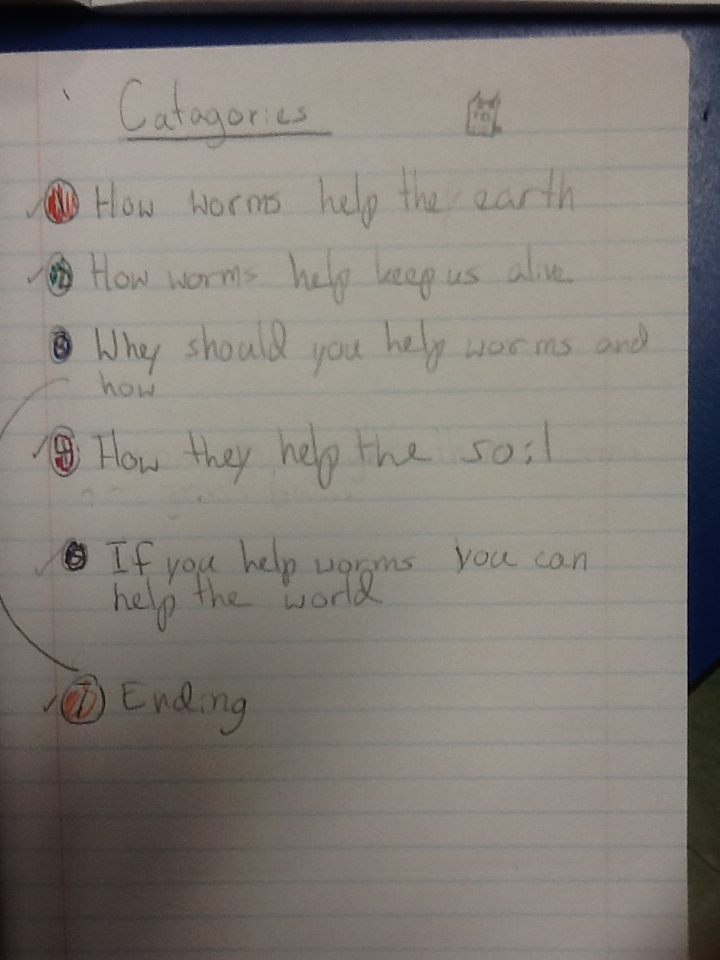 Catagories
1 How worms help the earth
2 How worms help keep us alive
3 Why should you help worms and
how
4 How they help the soil
5 If you help worms you can
help the world
7 Ending